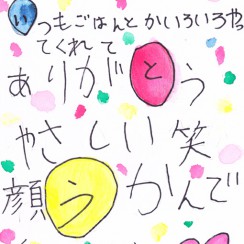 いつもごはんとかいろいろや
てくれて
ありがとう
やさしい笑
顔うかんで